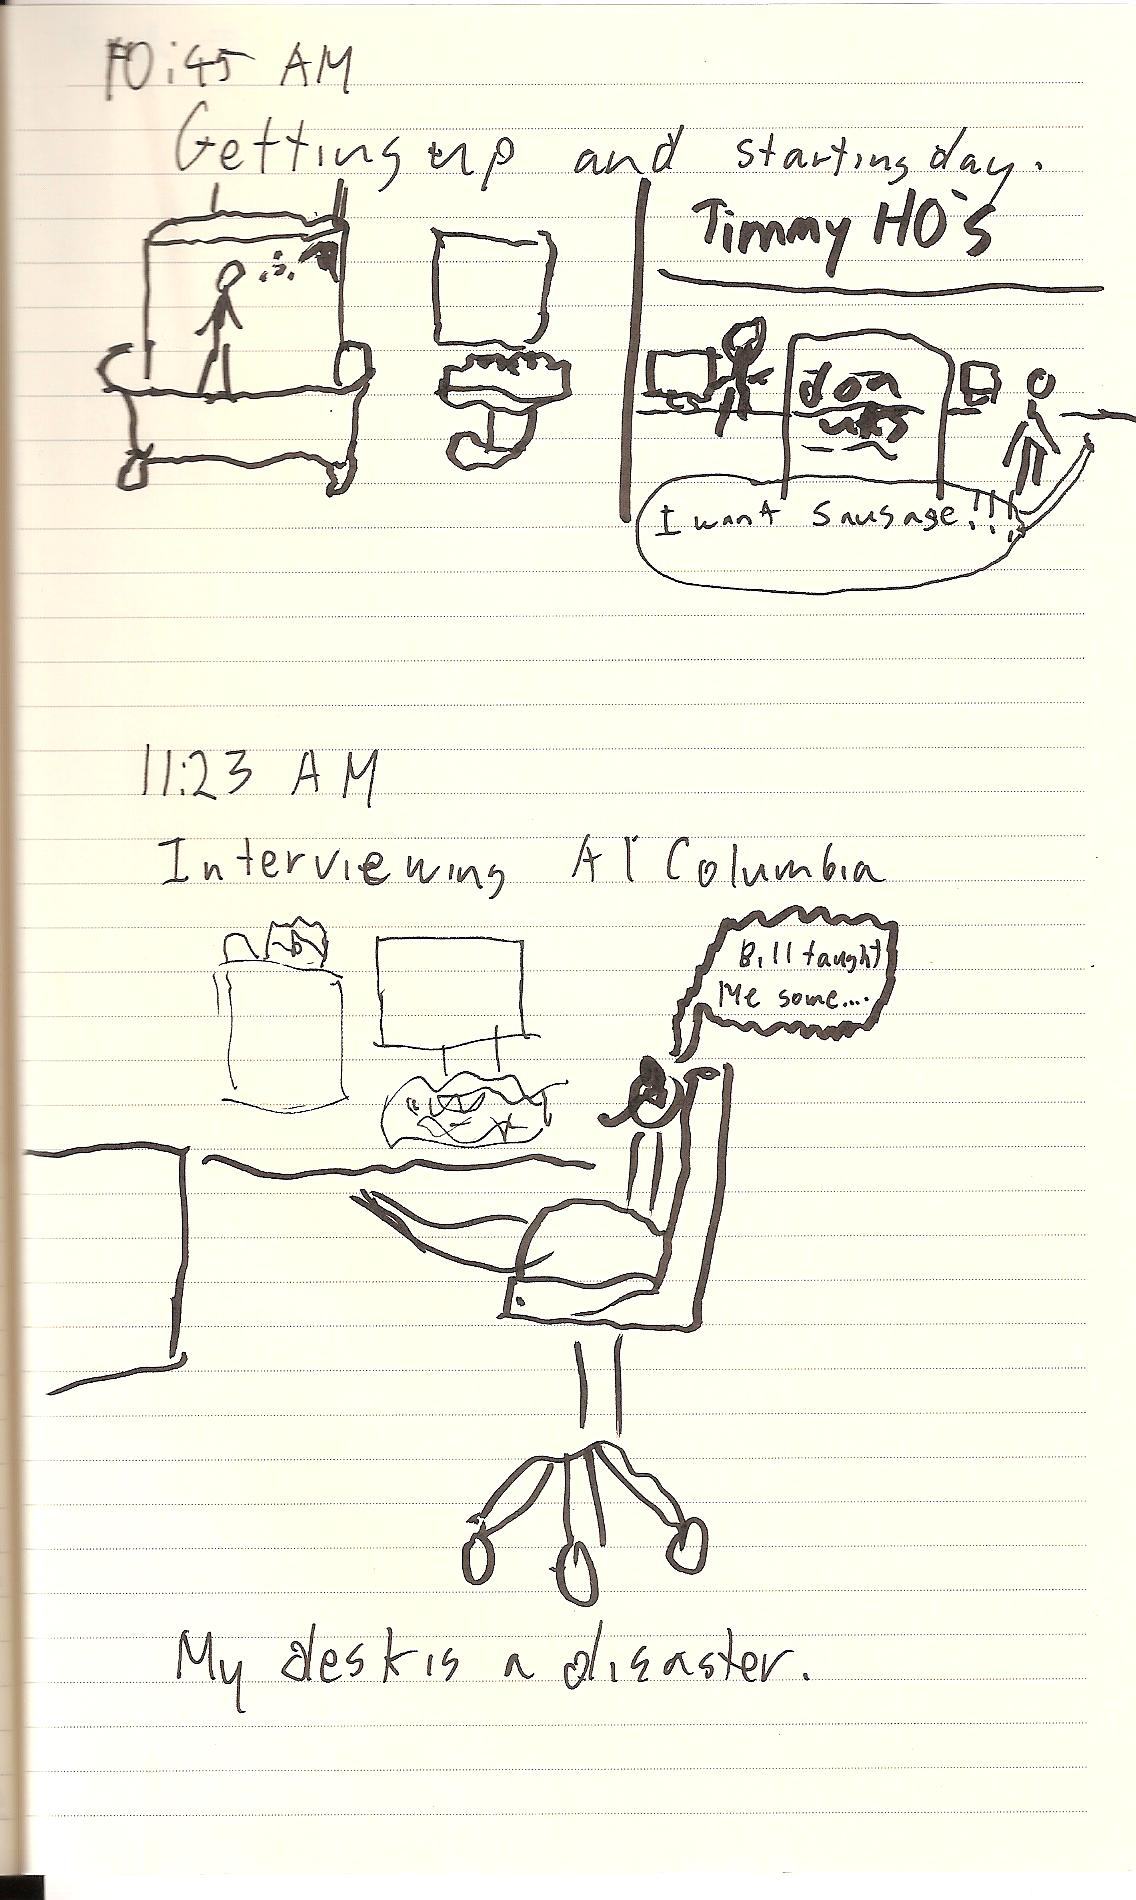 10:45 AM
Getting up and starting day.
Timmy HO's
don
uts
I want sausage!!!
11:23 AM
Interviewing At Columbia
Bill taught
Me some....
My desk is a disaster.